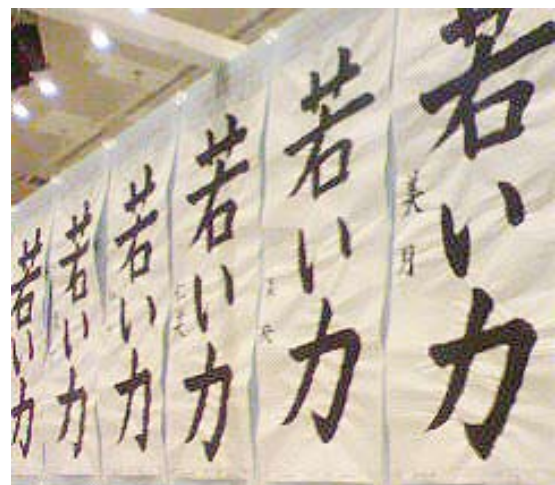 若い力
美月
若い力
若い力
若い力
若い力
若い力